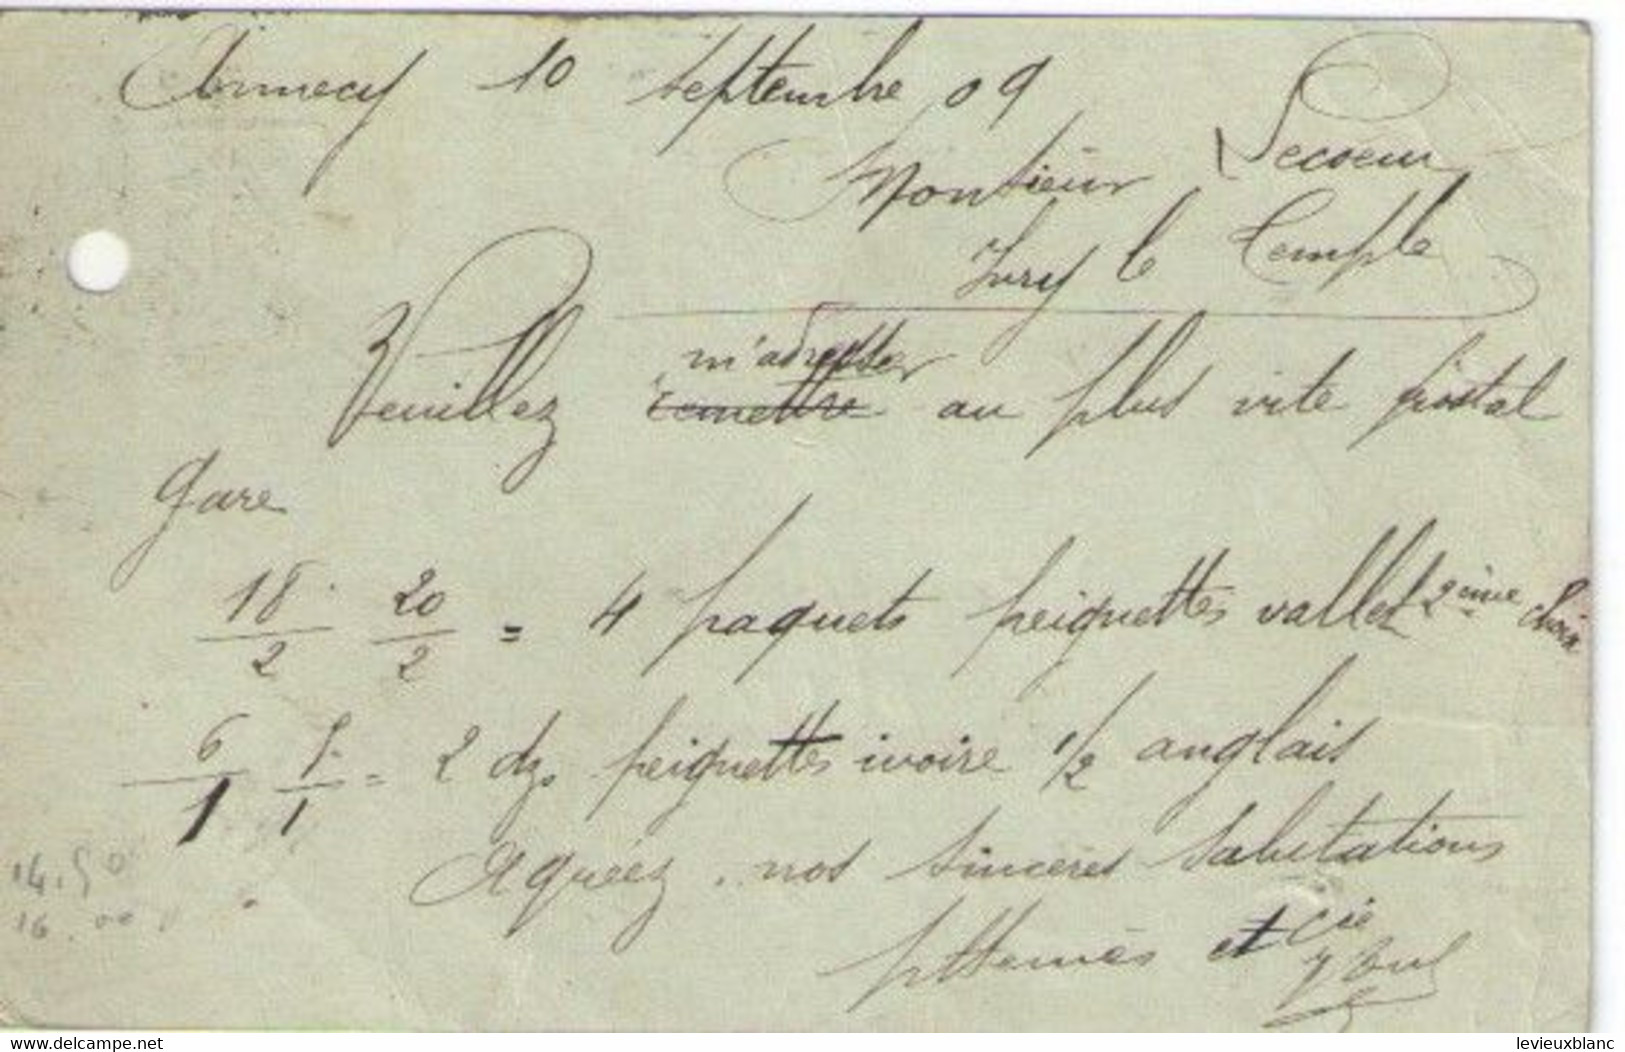 Annecy 10 Septembre 09
Monsieur Lecoeur
Ivry le Temple
m'adresser
Veuillez remettre au plus vite postal
gare
18/2 20/2 = 4 paquets peignettes vallet 2ème choix
6/1 /1 = 2 dz. peignettes ivoire 1/2 anglais
Agréez nos sincères Salutations
et Cie
14.50
16.00
levieuxblanc